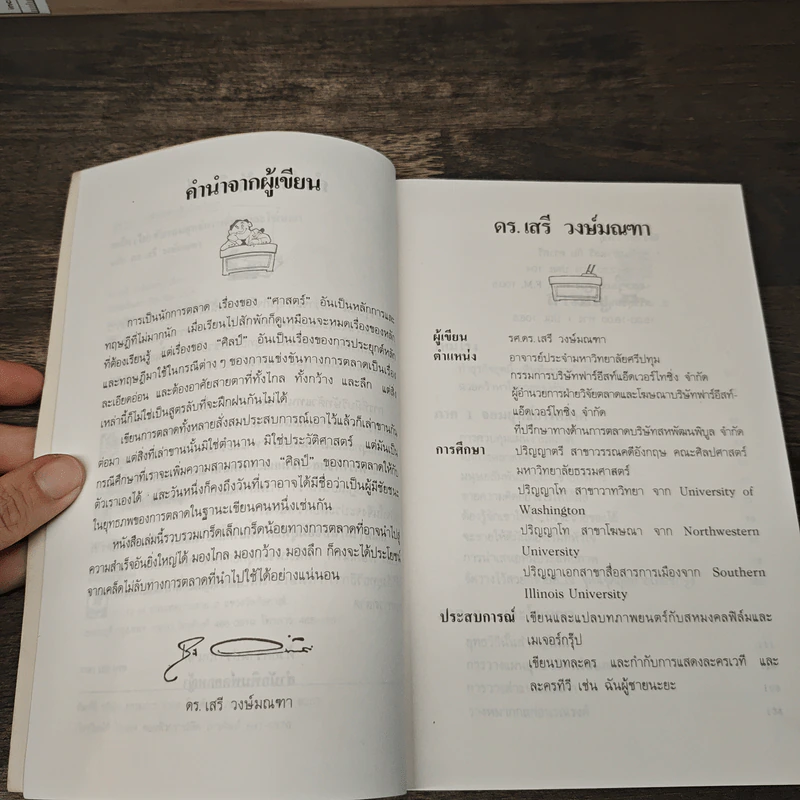 คำนำจากผู้เขียน
การเป็นนักการตลาด เรื่องของ "ศาสตร์" อันเป็นหลักการและ
ทฤษฎีที่ไม่มากนัก เมื่อเรียนไปสักพักก็ดูเหมือนจะหมดเรื่องของหลัก
ที่ต้องเรียนรู้ แต่เรื่องของ "ศิลป์" อันเป็นเรื่องของการประยุกต์หลัก
และทฤษฎีมาใช้ในกรณีต่าง ๆ ของการแข่งขันทางการตลาดเป็นเรื่อง
ละเอียดอ่อน และต้องอาศัยสายตาที่ทั้งไกล ทั้งกว้าง และลึก แต่สิ่ง
เหล่านี้ก็ไม่ใช่เป็นสูตรลับที่จะฝึกฝนกันไม่ได้
เซียนการตลาดทั้งหลายสั่งสมประสบการณ์เอาไว้แล้วก็เล่าขานกัน
ต่อมา แต่สิ่งที่เล่าขานนั้นมิใช่ตำนาน มิใช่ประวัติศาสตร์ แต่มันเป็น
กรณีศึกษาที่เราจะเพิ่มความสามารถทาง "ศิลป์" ของการตลาดให้กับ
ตัวเราเองได้ และวันหนึ่งก็คงถึงวันที่เราอาจได้มีชื่อว่าเป็นผู้มีชัยชนะ
ในยุทธภพของการตลาดในฐานะเซียนคนหนึ่งเช่นกัน
หนังสือเล่มนี้รวบรวมเกร็ดเล็กเกร็ดน้อยทางการตลาดที่อาจนำไปสู่
ความสำเร็จอันยิ่งใหญ่ได้ มองไกล มองกว้าง มองลึก ก็คงจะได้ประโยชน์
จากเคล็ดไม่ลับทางการตลาดที่นำไปใช้ได้อย่างแน่นอน
ดร. เสรี วงษ์มณฑา
ดร. เสรี วงษ์มณฑา
ผู้เขียน รศ.ดร. เสรี วงษ์มณฑา
ตำแหน่ง อาจารย์ประจำมหาวิทยาลัยศรีปทุม
กรรมการบริษัทฟาร์อีสท์แอ็ดเวอร์ไทซิ่ง จำกัด
ผู้อำนวยการฝ่ายวิจัยตลาดและโฆษณาบริษัทฟาร์อีสท์-
แอ็ดเวอร์ไทซิ่ง จำกัด
ที่ปรึกษาทางด้านการตลาดบริษัทสหพัฒนพิบูล จำกัด
การศึกษา ปริญญาตรี สาขาวรรณคดีอังกฤษ คณะศิลปศาสตร์
มหาวิทยาลัยธรรมศาสตร์
ปริญญาโท สาขาวาทวิทยา จาก University of
Washington
ปริญญาโท สาขาโฆษณา จาก Northwestern
University
ปริญญาเอกสาขาสื่อสารการเมืองจาก Southern
Illinois University
ประสบการณ์ เขียนและแปลบทภาพยนตร์กับสหมงคลฟิล์มและ
เมเจอร์กรุ๊ป
เขียนบทละคร และกำกับการแสดงละครเวที และ
ละครทีวี เช่น ฉันผู้ชายนะยะ